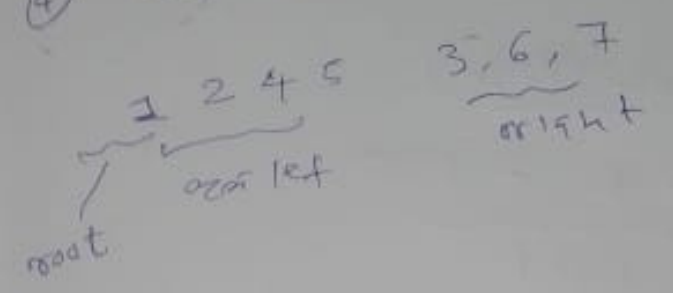 4
1 2 4 5 3, 6, 7
root left right